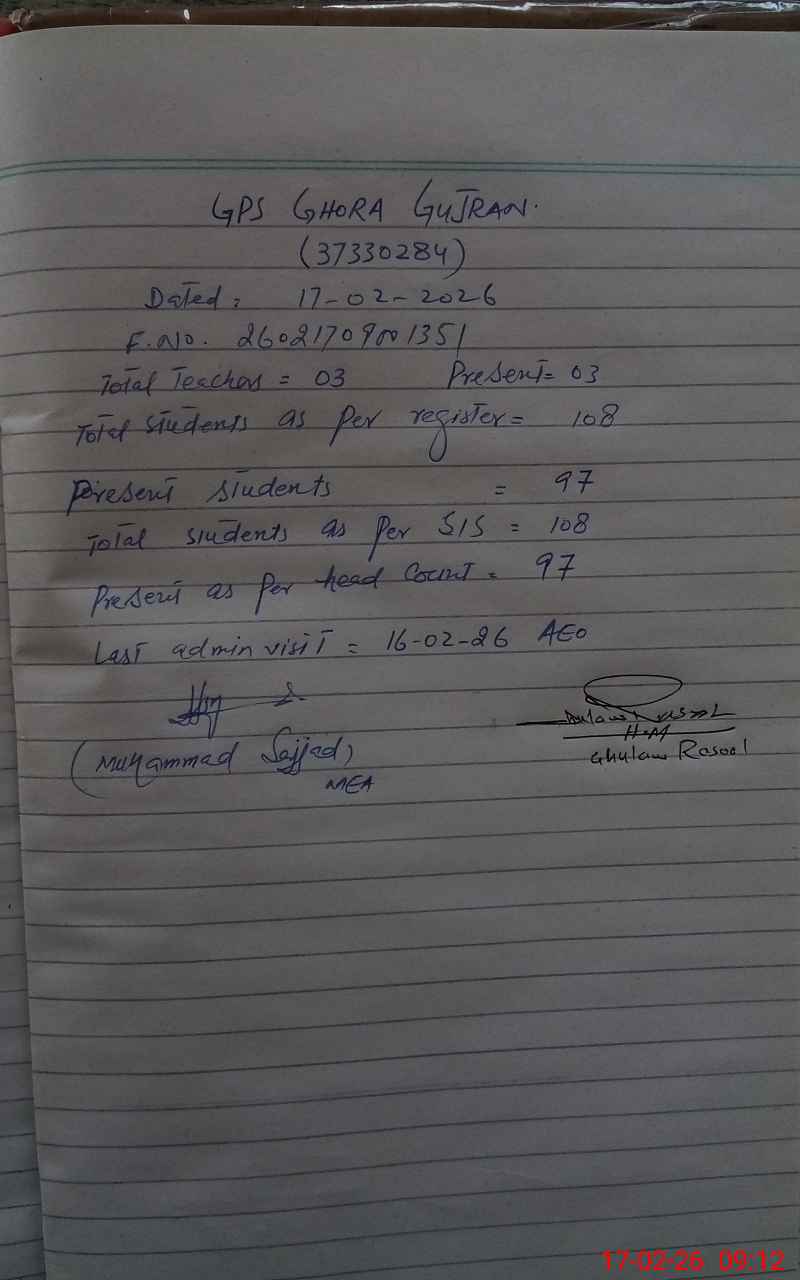 GPS GHORA GUJRAN.
(37330284)
Dated: 17-02-2026
F.No. 26021709001351
Total Teachers = 03 Present = 03
Total students as per register = 108
Present students = 97
Total students as per SIS = 108
Present as per head count = 97
Last admin visit = 16-02-26 AEO
(Muhammad Sajjad)
MEA
H.M
Ghulam Rasool
17-02-26 09:12